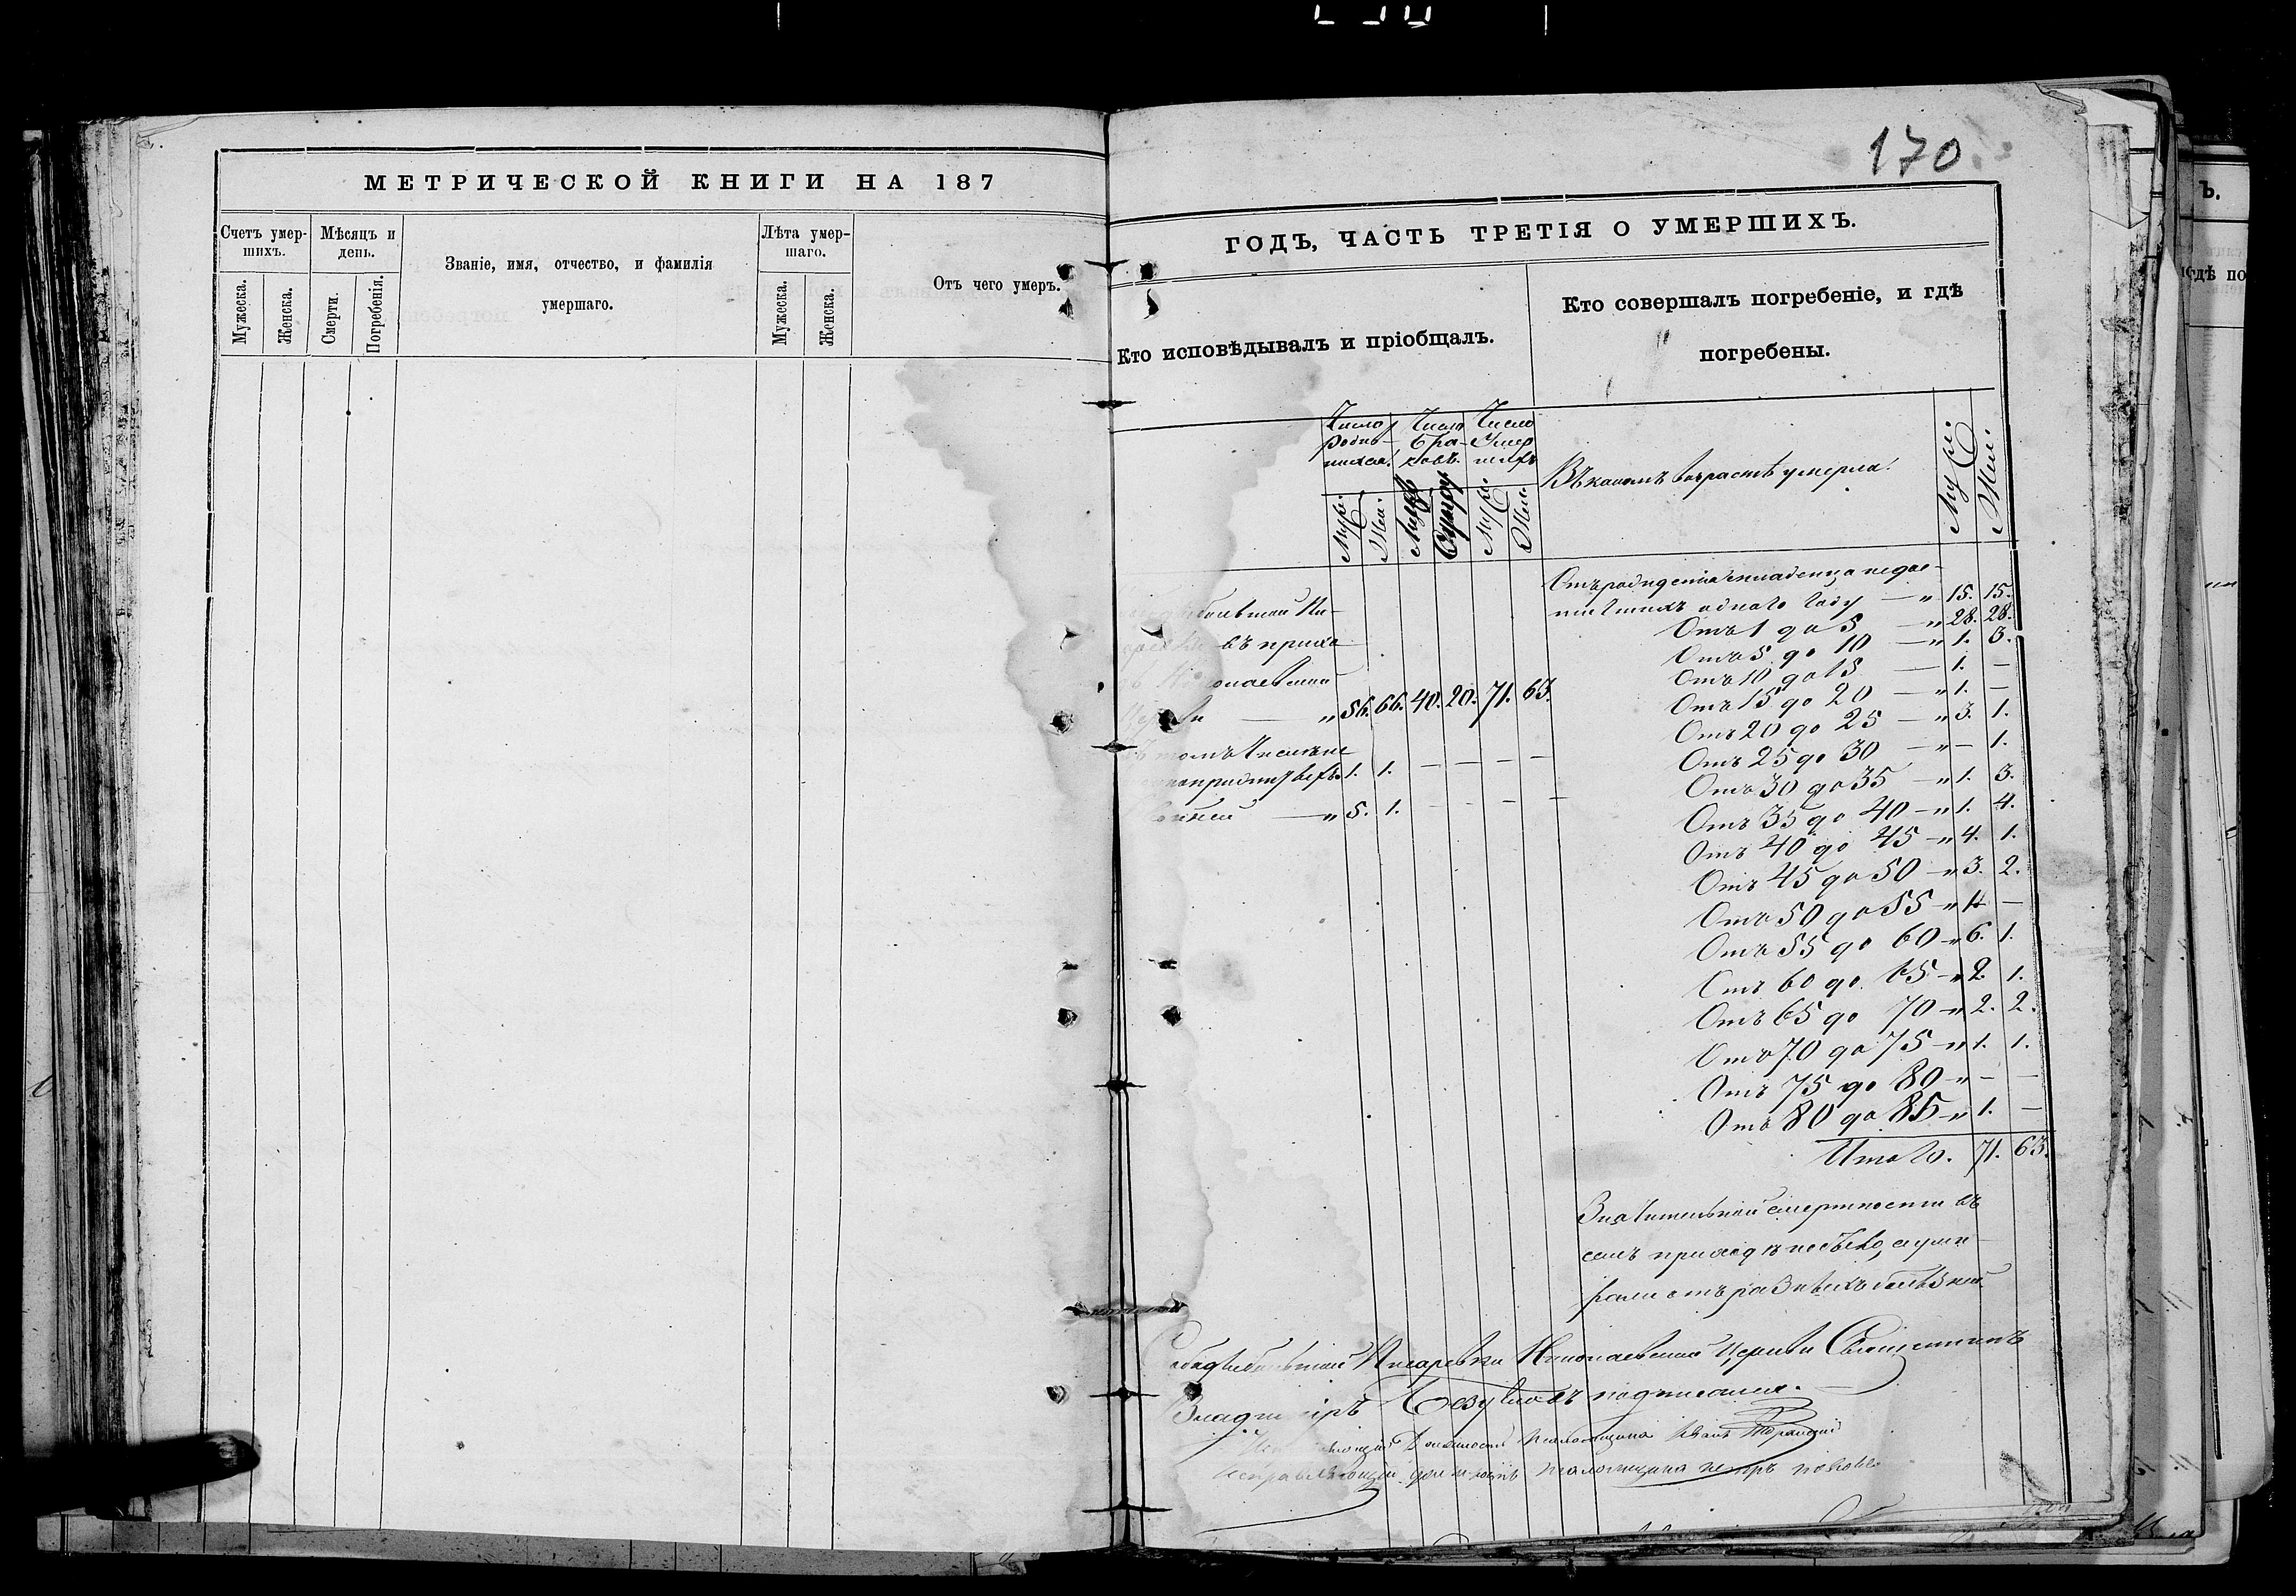 170.
МЕТРИЧЕСКОЙ КНИГИ НА 187
Счетъ умер-
шихъ.
Мужеска.
Женска.
Мѣсяцъ и
день.
Смерти.
Погребенія.
Званіе, имя, отчество, и фамилія
умершаго.
Лѣта умер-
шаго.
Мужеска.
Женска.
Отъ чего умеръ.
ГОДЪ, ЧАСТЬ ТРЕТІЯ О УМЕРШИХЪ.
Кто исповѣдывалъ и пріобщалъ.
Кто совершалъ погребеніе, и гдѣ
погребены.
Число
родив-
шихся.
Число
бра-
ковъ.
Число
Умер
шихъ
Муж.
Жен.
Супру
Муж.
Жен.
Въ какомъ возрастѣ умерли.
Муж.
Жен.
въ прихо
Николаевской
Церкви — „ 56. 66. 40. 20. 71. 63.
томъ числѣ не
1. 1. — — — —
„ 5. 1. — — — —
Отъ рожденія младенца недос-
тигшихъ одного году — „ 15. 15.
Отъ 1 до 5 — „ 28. 28.
Отъ 5 до 10 — „ 1. 3.
Отъ 10 до 15 — 1. —
Отъ 15 до 20 — „ 1. —
Отъ 20 до 25 — „ 3. 1.
Отъ 25 до 30 — „ — 1.
Отъ 30 до 35 — „ 1. 3.
Отъ 35 до 40 — „ 1. 4.
Отъ 40 до 45 — „ 4. 1.
Отъ 45 до 50 — „ 3. 2.
Отъ 50 до 55 — „ —
Отъ 55 до 60 — „ 6. 1.
Отъ 60 до 65 — „ 2. 1.
Отъ 65 до 70 — „ 2. 2.
Отъ 70 до 75 — „ 1. 1.
Отъ 75 до 80 — „ — —
Отъ 80 до 85 — „ 1. —
Итого. 71. 63.
Значительной смертности въ
семъ приходѣ не было, а уми-
рали отъ разныхъ болѣзней
Писаревки Николаевской Церкви Священникъ
Владиміръ подписался.
Должность Псаломщика Иванъ
Исправляющій должность псаломщика